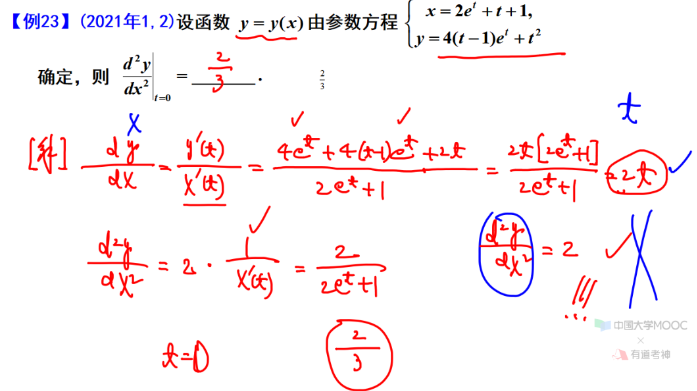 【例23】(2021年1,2)设函数 y = y(x) 由参数方程 { x = 2e^t + t + 1, y = 4(t−1)e^t + t^2
确定，则 d²y/dx² |_{t=0} = 2/3 . 2/3
x t
[解] dy/dx = y′(t)/x′(t) = (4e^t + 4(t-1)e^t + 2t)/(2e^t + 1) = 2t[2e^t + 1]/(2e^t + 1) = 2t
d²y/dx² = 2 · 1/x′(t) = 2/(2e^t + 1) d²y/dx² = 2
!!!
t = 0 2/3
中国大学MOOC
×
有道考神